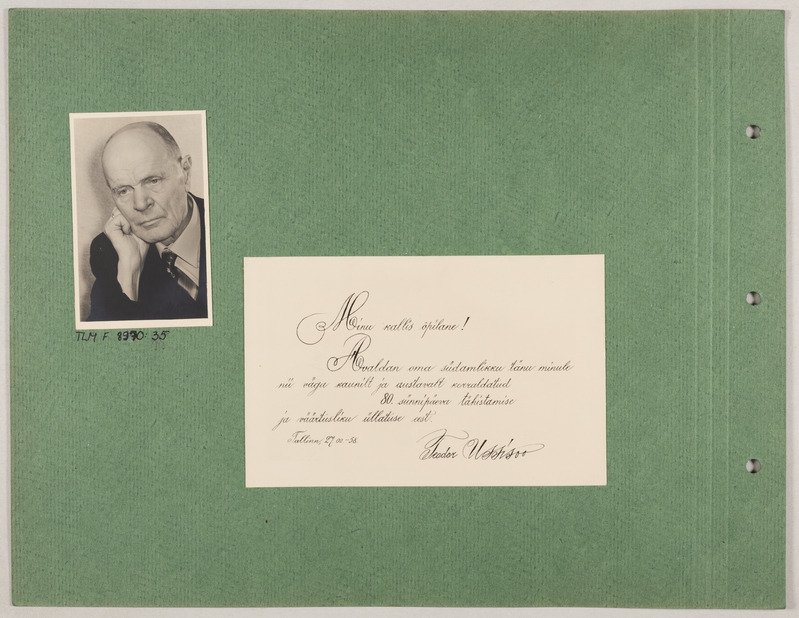 TLM F 8970:35
Minu kallis õpilane!
Avaldan oma südamlikku tänu minule
nii väga kaunilt ja austavalt korraldatud
80. sünnipäeva tähistamise
ja väärtusliku üllatuse eest.
Tallinn, 27 -58.
Teodor Ussisoo